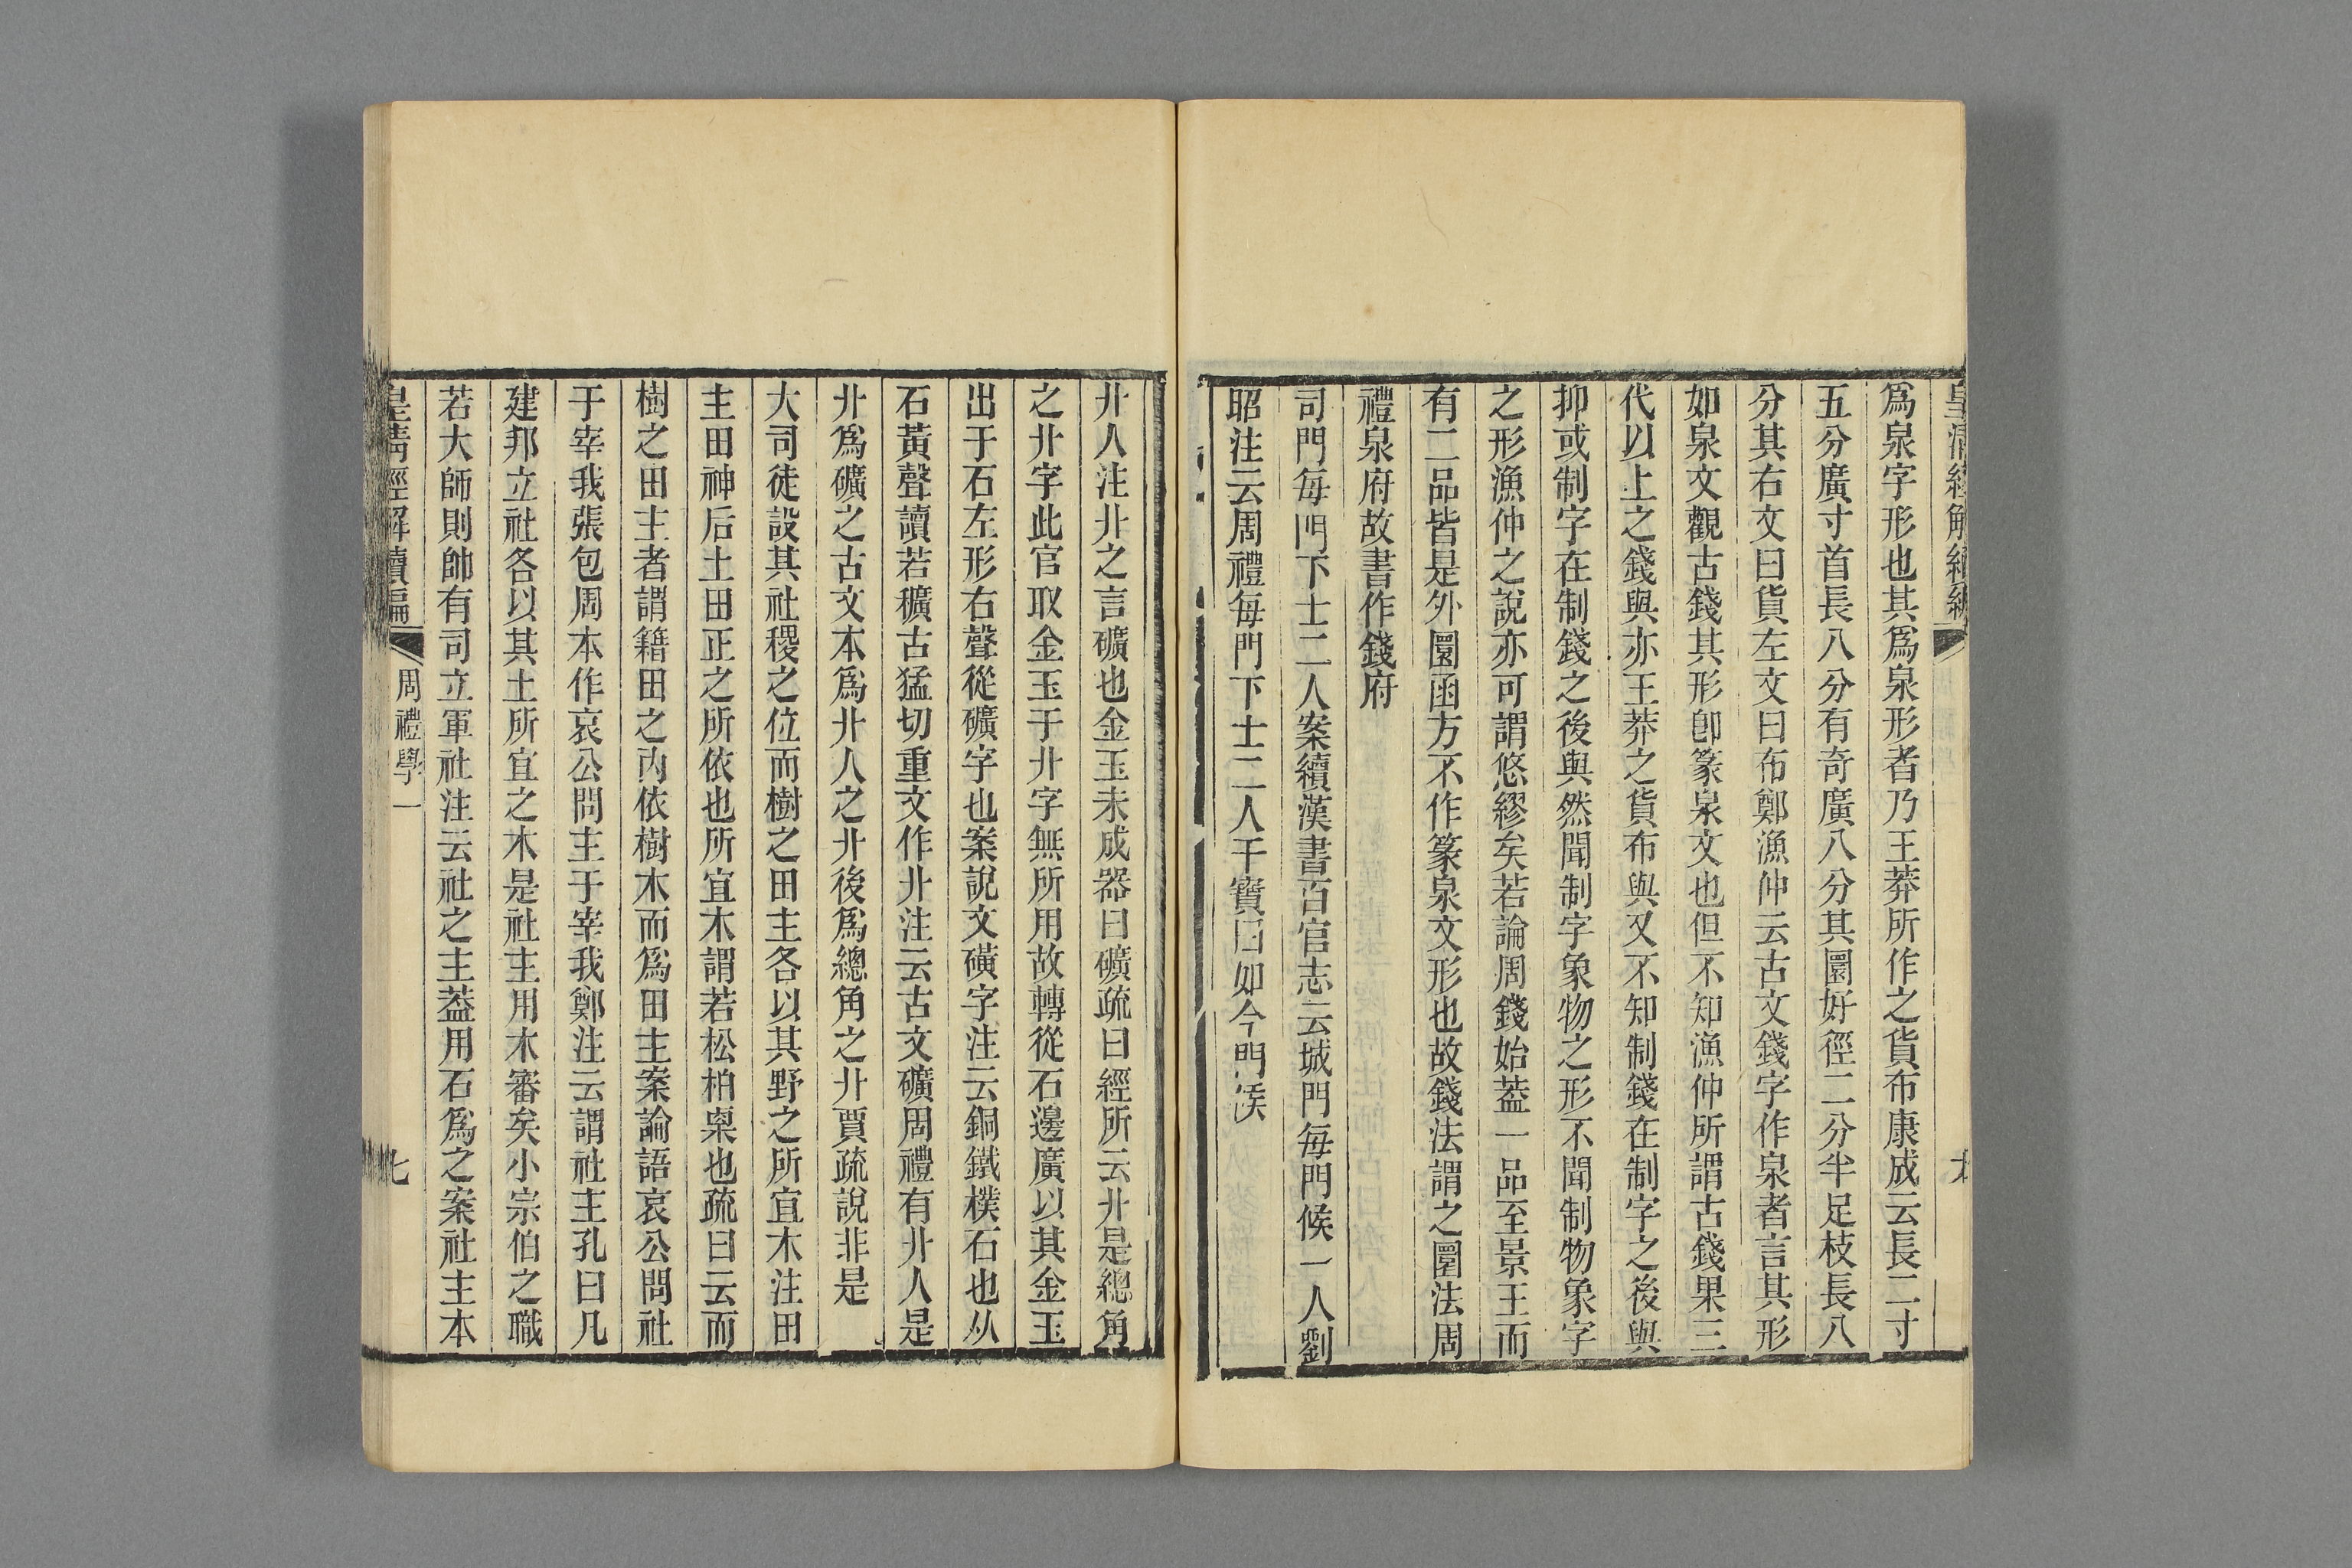 皇清經解續編
爲泉字形也其爲泉形者乃王莽所作之貨布康成云長二寸
五分廣寸首長八分有奇廣八分其圜好徑二分半足枝長八
分其右文曰貨左文曰布鄭漁仲云古文錢字作泉者言其形
如泉文觀古錢其形卽篆泉文也但不知漁仲所謂古錢果三
代以上之錢與亦王莽之貨布與又不知制錢在制字之後與
抑或制字在制錢之後與然聞制字象物之形不聞制物象字
之形漁仲之說亦可謂悠繆矣若論周錢始蓋一品至景王而
有二品皆是外圜函方不作篆泉文形也故錢法謂之圜法周
禮泉府故書作錢府
司門每門下士二人案續漢書百官志云城門每門候一人劉
昭注云周禮每門下士二人干寶曰如今門候
丱人注丱之言礦也金玉未成器曰礦疏曰經所云丱是總角
之丱字此官取金玉于丱字無所用故轉從石邊廣以其金玉
出于石左形右聲從礦字也案說文磺字注云銅鐵樸石也从
石黃聲讀若穬古猛切重文作丱注云古文礦周禮有丱人是
丱爲礦之古文本爲丱人之丱後爲總角之丱賈疏說非是
大司徒設其社稷之位而樹之田主各以其野之所宜木注田
主田神后土田正之所依也所宜木謂若松柏栗也疏曰云而
樹之田主者謂籍田之內依樹木而爲田主案論語哀公問社
于宰我張包周本作哀公問主于宰我鄭注云謂社主孔曰凡
建邦立社各以其土所宜之木是社主用木審矣小宗伯之職
若大師則帥有司立軍社注云社之主蓋用石爲之案社主本
皇清經解續編
周禮學一
七